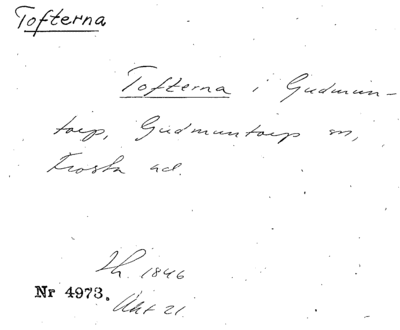 Tofterna
Tofterna i Gudmun-
torp, Gudmuntorp sn,
Frosta hd.
Lh. 1846
Nr 4973. Akt 21